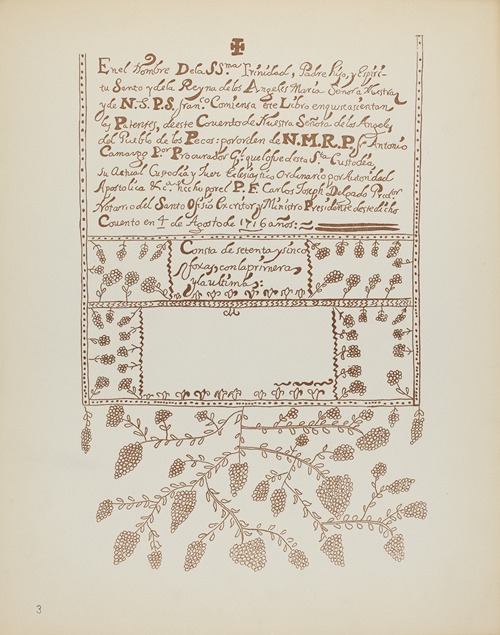 En el Nombre Dela SS.ma Trinidad, Padre hijo, y Espiri-
tu Santo y de la Reyna de los Angeles Maria Señora Nuestra,
y de N.S.P.S. fran.co Comiensa este Libro en que se asientan
las Patentes, de este Covento de Nuestra Señora de los Angeles
del Pueblo de los Pecos: por orden de N.M.R.P. Antonio
Camargo P.or Procurador G.l que lo fue de esta S.ta Custodia,
Su Actual Custodio, y Juez Eclesiastico Ordinario por Autoridad
Apostolica &c.a hecho por el P. F. Carlos Joseph Delgado
Notario del Santo Ofisio Escritor, y Ministro Presidente de este dicho
Covento en 4 de Agosto de 1716 años:
Consta de setenta y sinco
foxas con la primera
y la ultima:
3